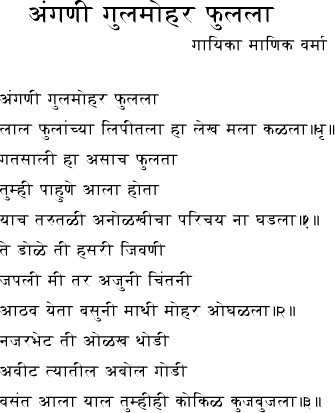 अंगणी गुलमोहर फुलला
गायिका माणिक वर्मा
अंगणी गुलमोहर फुलला
लाल फुलांच्या लिपीतला हा लेख मला कळला॥धृ॥
गतसाली हा असाच फुलता
तुम्ही पाहुणे आला होता
याच तरुतळी अनोळखीचा परिचय ना घडला॥१॥
ते डोळे ती हसरी जिवणी
जपली मी तर अजुनी चिंतनी
आठव येता वसुनी माथी मोहर ओघळला॥२॥
नजरभेट ती ओळख थोडी
अवीट त्यातील अबोल गोडी
वसंत आला याल तुम्हीही कोकिळ कुजबुजला॥३॥